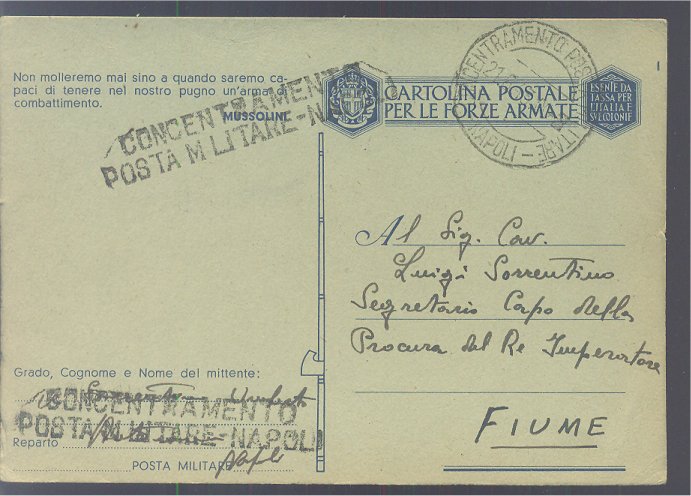 Non molleremo mai sino a quando saremo ca-
paci di tenere nel nostro pugno un'arma di
combattimento.
MUSSOLINI
CONCENTRAMENTO
POSTA MILITARE-NAPOLI
CARTOLINA POSTALE
PER LE FORZE ARMATE
CONCENTRAMENTO POSTA MILITARE
NAPOLI
ESENTE DA
TASSA PER
L'ITALIA E
SVE COLONIE
Al Sig. Cav.
Luigi Sorrentino
Segretario Capo della
Procura del Re Imperatore
FIUME
Grado, Cognome e Nome del mittente:
Sorrentino Umberto
CONCENTRAMENTO
POSTA MILITARE-NAPOLI
Reparto
POSTA MILITARE Napoli